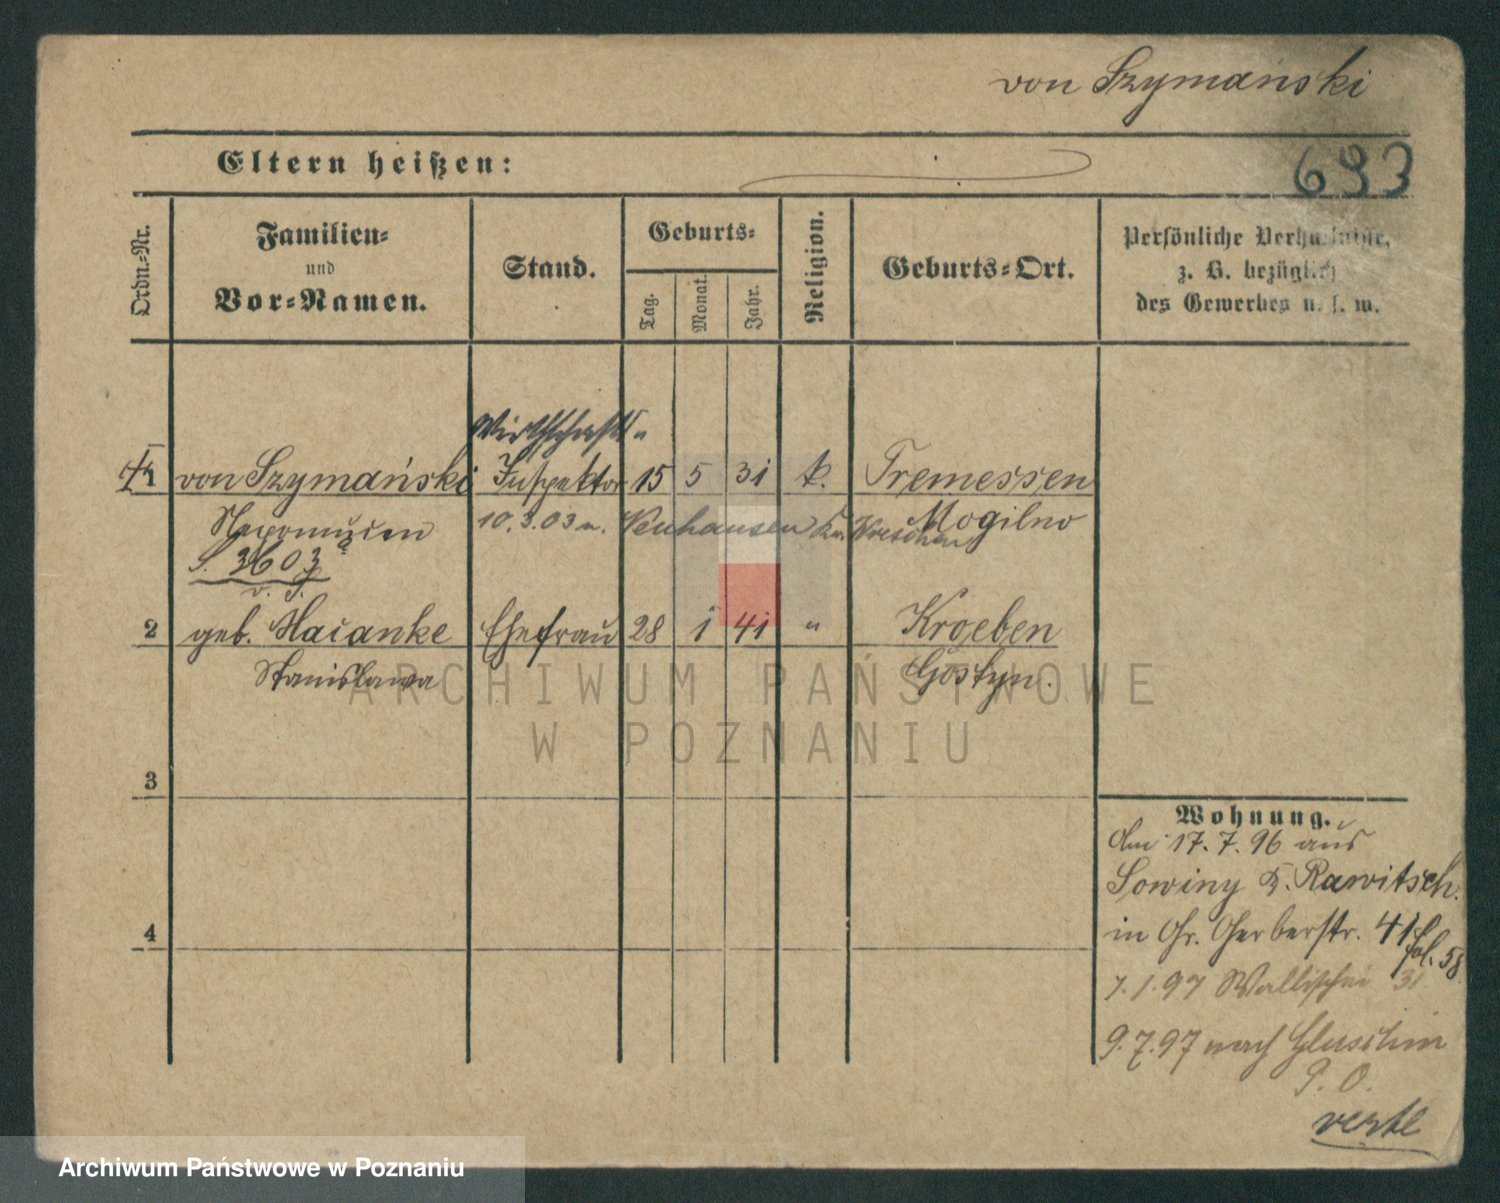 von Szymański
Eltern heißen:
693
Ordn.-Nr.
Familien-
und
Vor-Namen.
Stand.
Geburts-
Tag.
Monat.
Jahr.
Religion.
Geburts-Ort.
Persönliche Verhältnisse,
z. B. bezüglich
des Gewerbes u. s. w.
Wirthschafts-
1 von Szymański Inspektor 15 5 31 k. Tremessen
Nepomucen 10.3.03 n. Neuhausen Kr. Wreschen Mogilno
S. 3603
2 geb. Ehefrau 28 1 41 " Kroeben
Stanislawa Gostyn.
3
4
Wohnung.
Am 17.7.96 aus
Sowiny K. Rawitsch.
in Gr. Gerberstr. 41
fol. 58
7.1.97 Wallischei 31
9.7.97 nach Gluschin
P. O.
verte
ARCHIWUM PAŃSTWOWE
W POZNANIU
Archiwum Państwowe w Poznaniu